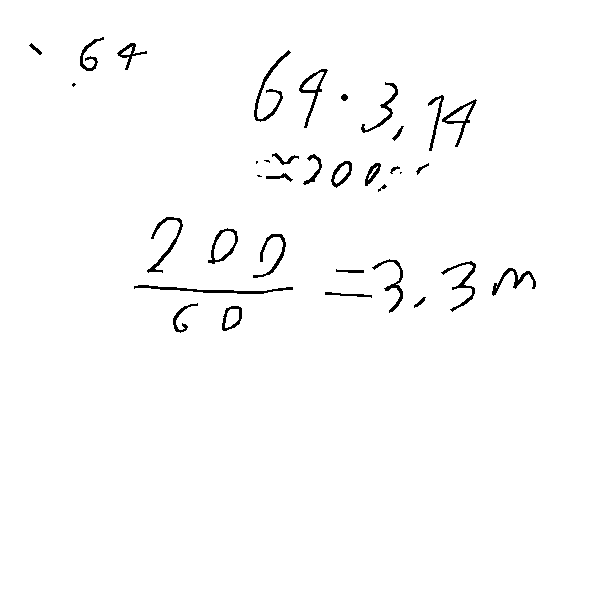 64
64·3,14
≈200
200
60
=3.3m